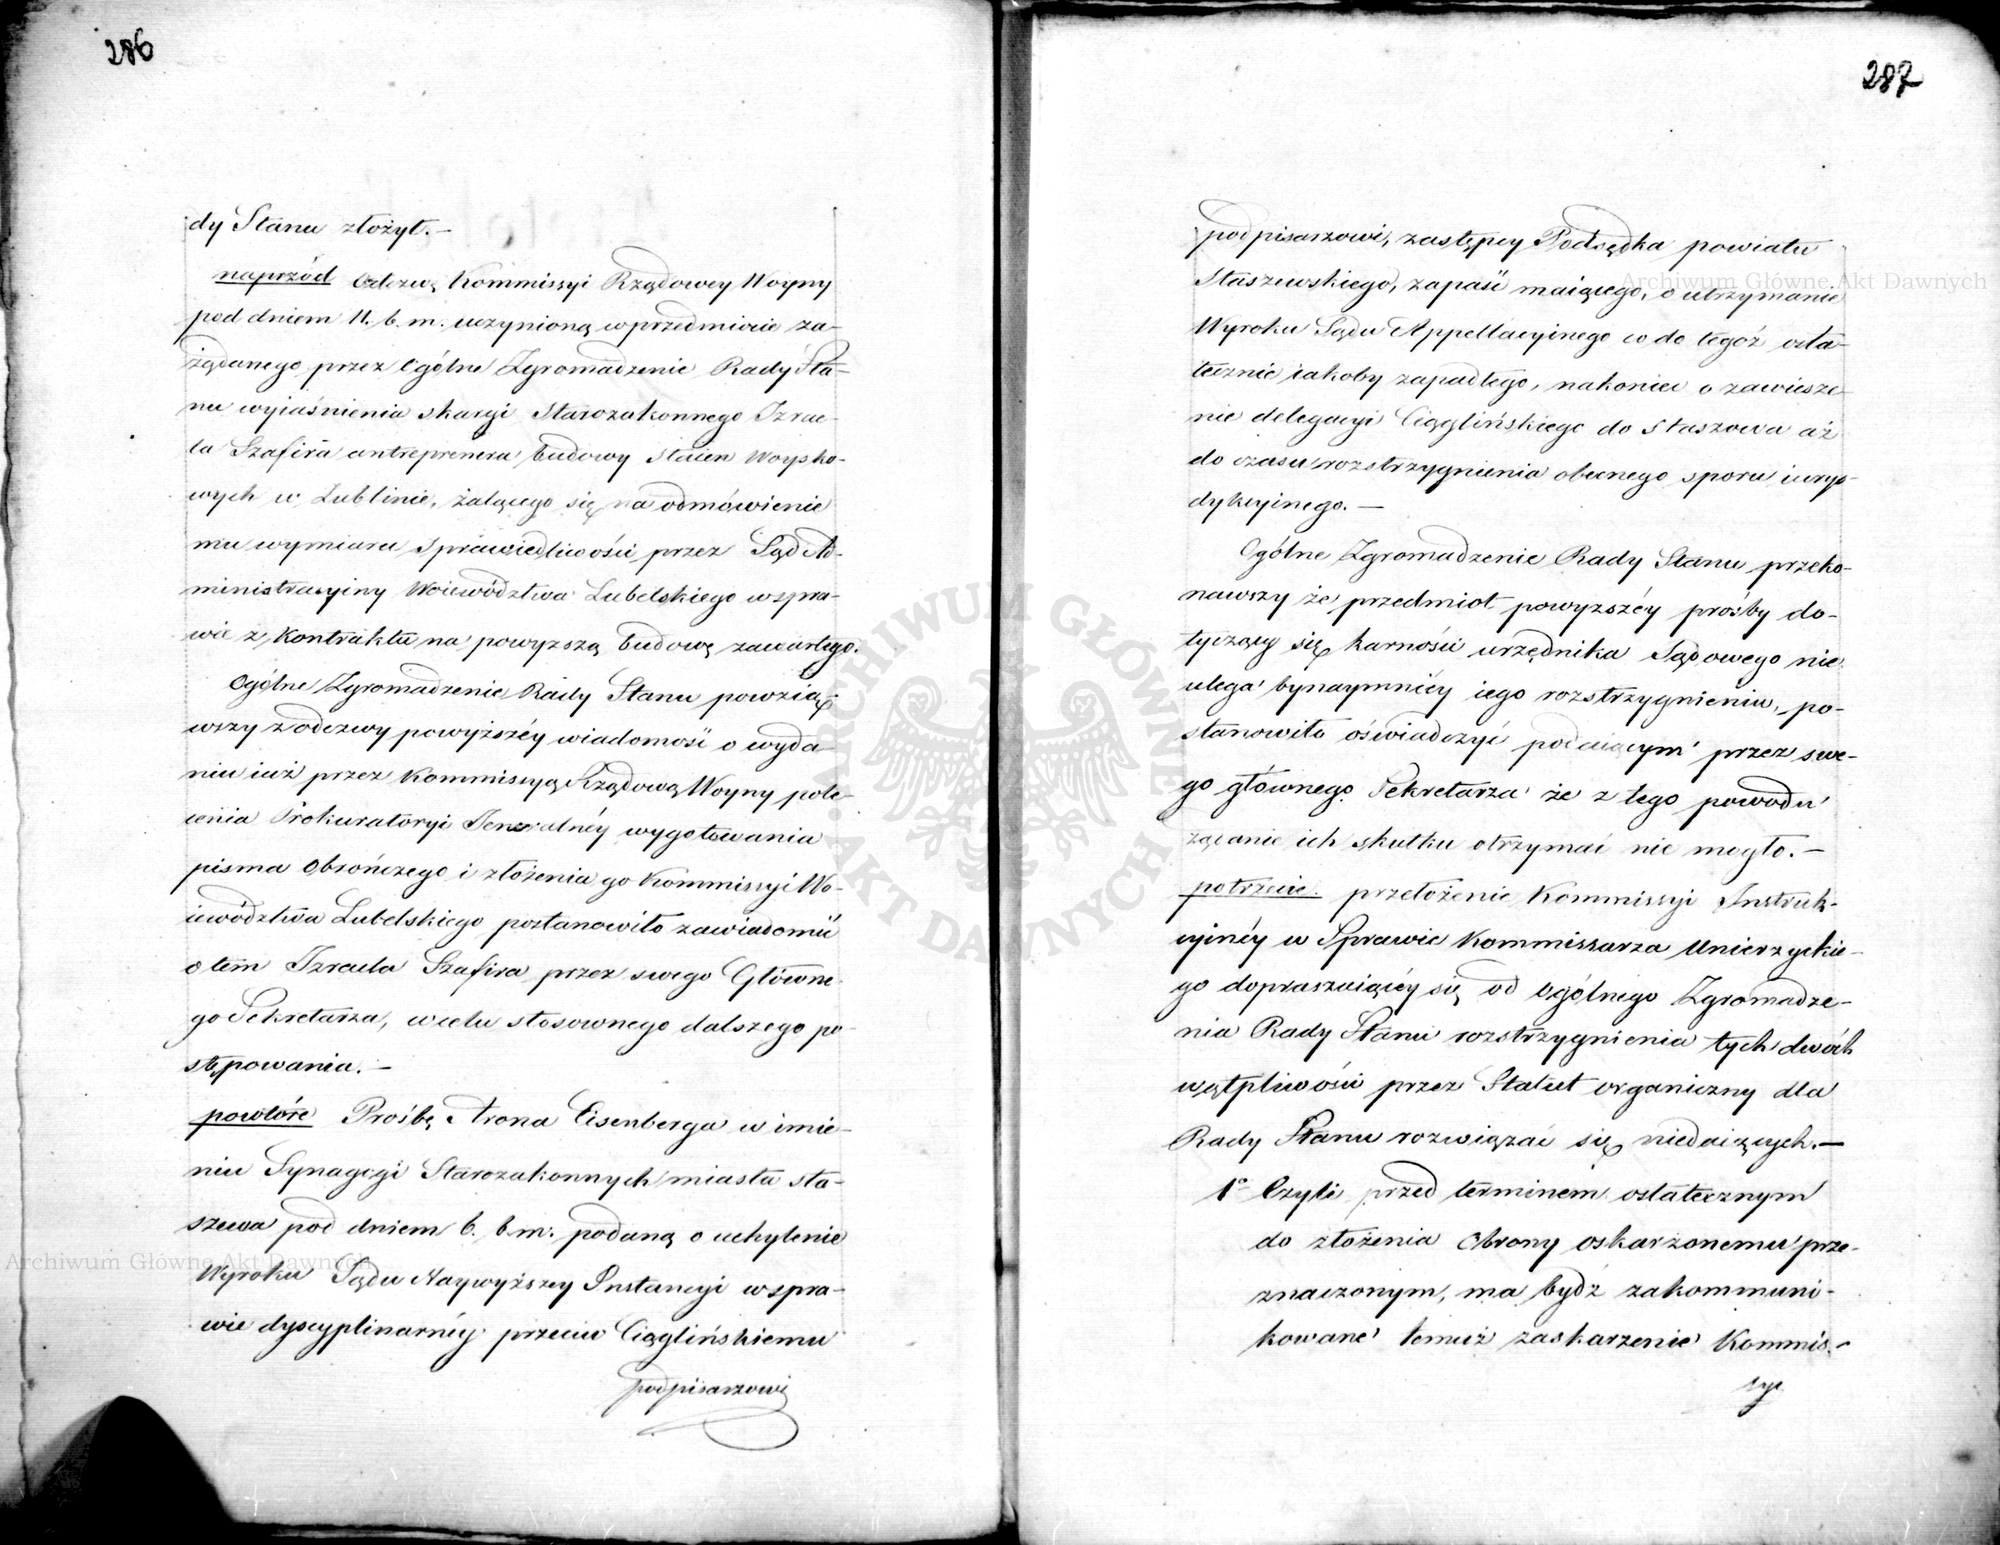 286
dy Stanu złożył.—
naprzód Odezwę Kommissyi Rządowey Woyny
pod dniem 11. b. m. uczynioną w przedmiocie za-
żądanego przez Ogólne Zgromadzenie Rady Sta-
nu wyiaśnienia skargi Starozakonnego Izrae-
la Szafira antreprenera budowy staien woysko-
wych w Lublinie, żalącego się na odmówienie
mu wymiaru sprawiedliwości przez Sąd Ad-
ministracyiny Woiewództwa Lubelskiego w spra-
wie z kontraktu na powyzszą budowę zawartego.
Ogólne Zgromadzenie Rady Stanu powzią-
wszy z odezwy powyższéy wiadomość o wyda-
niu iuż przez Kommissyą Rządową Woyny pole-
cenia Prokuratoryi Jeneralnéy wygotowania
pisma obrończego i złożenia go Kommissyi Wo-
iewództwa Lubelskiego postanowiło zawiadomić
o tém Izraela Szafira przez swego Główne-
go Sekretarza, w celu stosownego dalszego po-
stępowania.—
powtóre Prośbę Arona Eisenberga w imie-
niu Synagogi Starozakonnych miasta Sta-
szewa pod dniem 6. b. m. podaną o uchylenie
Wyroku Sądu Naywyższey Instancyi w spra-
wie dyscyplinarnéy przeciw Ciąglińskiemu
podpisarzowi
287
podpisarzowi, zastępcy Podsędka powiatu
Staszewskiego, zapaść maiącego, o utrzymanie
Wyroku Sądu Appellacyinego co do tegoż osta-
tecznie iakoby zapadłego, nakoniec o zawiesze-
nie delegacyi Ciąglińskiego do Staszowa aż
do czasu rozstrzygnienia obecnego sporu iurys-
dykcyinego.—
Ogólne Zgromadzenie Rady Stanu przeko-
nawszy że przedmiot powyzszéy prośby do-
tyczący się karności urzędnika Sądowego nie
ulega bynaymniéy iego rozstrzygnieniu, po-
stanowiło oświadczyć podaiącym przez swe-
go głównego Sekretarza że z tego powodu
żądanie ich skutku otrzymać nie mogło.—
potrzecie. przełożenie Kommissyi Instruk-
cyinéy w Sprawie Kommissarza Unierzyckie-
go dopraszaiącéy się od Ogólnego Zgromadze-
nia Rady Stanu rozstrzygnienia tych dwóch
wątpliwości przez Statut organiczny dla
Rady Stanu rozwiązać się niedaiących.—
1º Czyli przed terminem ostatecznym
do złożenia Obrony oskarżonemu prze-
znaczonym, ma bydź zakommuni-
kowane temuż zaskarzenie Kommis-
syi
Archiwum Główne Akt Dawnych
Archiwum Główne Akt Dawnych
ARCHIWUM GŁÓWNE AKT DAWNYCH